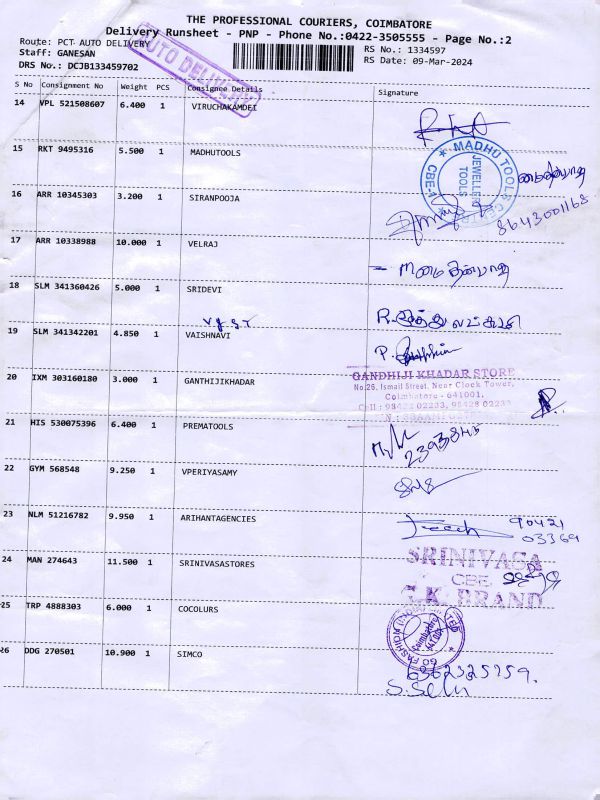 THE PROFESSIONAL COURIERS, COIMBATORE
Delivery Runsheet - PNP - Phone No.:0422-3505555 - Page No.:2
Route: PCT AUTO DELIVERY
RS No.: 1334597
Staff: GANESAN
RS Date: 09-Mar-2024
DRS No.: DCJB133459702
AUTO DELIVERY
S No Consignment No Weight PCS Consignee Details Signature
14 VPL 521508607 6.400 1 VIRUCHAKAMDEI
15 RKT 9495316 5.500 1 MADHUTOOLS
MADHU TOOLS
JEWELLERY TOOLS
CBE-1
16 ARR 10345303 3.200 1 SIRANPOOJA
8643001168
17 ARR 10338988 10.000 1 VELRAJ
18 SLM 341360426 5.000 1 SRIDEVI
19 SLM 341342201 4.850 1 VAISHNAVI
20 IXM 303160180 3.000 1 GANTHIJIKHADAR
GANDHIJI KHADAR STORE
No.26, Ismail Street, Near Clock Tower,
Coimbatore - 641001.
21 HIS 530075396 6.400 1 PREMATOOLS
22 GYM 568548 9.250 1 VPERIYASAMY
23 NLM 51216782 9.950 1 ARIHANTAGENCIES
90421
03369
24 MAN 274643 11.500 1 SRINIVASASTORES
SRINIVASA
CBE.
T.K. BRAND
25 TRP 4888303 6.000 1 COCOLURS
GO FASHION
Coimbatore
26 DDG 270501 10.900 1 SIMCO